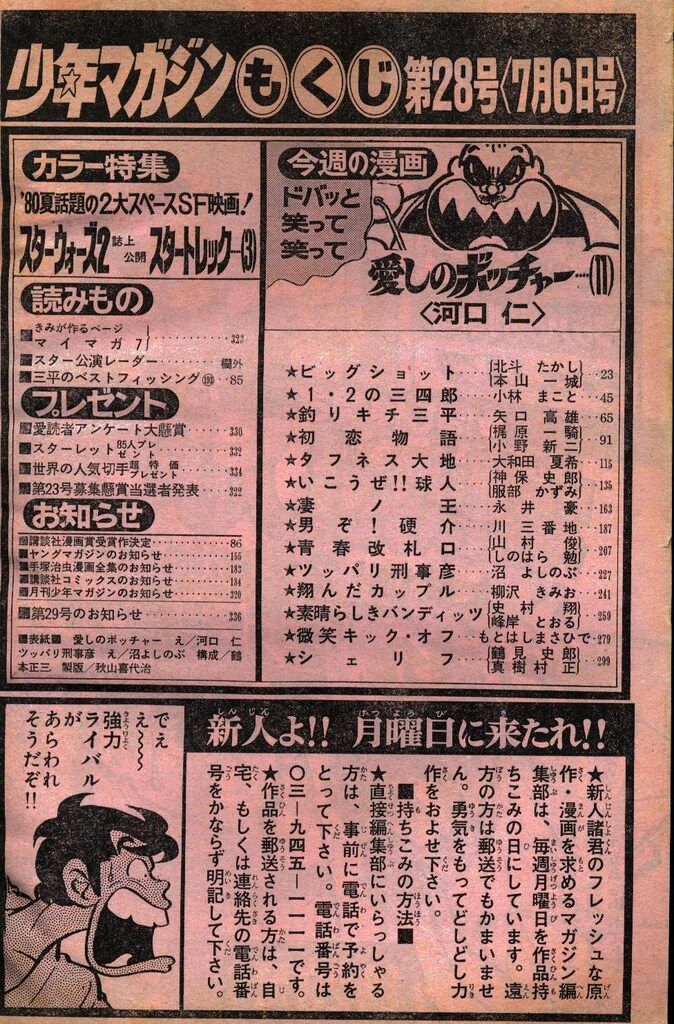 少年マガジン もくじ 第28号〈7月6日号〉
カラー特集
'80夏話題の2大スペースSF映画!
スターウォーズ2 誌上公開 スタートレック…(3)
読みもの
■きみが作るページ
マイマガ7………323
■スター公演レーダー………欄外
■三平のベストフィッシング(193)…85
プレゼント
■愛読者アンケート大懸賞………330
■スターレット85人プレゼント………332
■世界の人気切手超特価プレゼント………334
■第23号募集懸賞当選者発表………322
お知らせ
■講談社漫画賞受賞作決定………86
■ヤングマガジンのお知らせ………155
■手塚治虫漫画全集のお知らせ………183
■講談社コミックスのお知らせ………184
■月刊少年マガジンのお知らせ………320
■第29号のお知らせ………336
■表紙■ 愛しのボッチャー え/河口 仁
ツッパリ刑事彦 え/沼よしのぶ 構成/鶴
本正三 製版/秋山喜代治
今週の漫画
ドバッと
笑って
笑って
愛しのボッチャー…(11)
〈河口 仁〉
★ビッグショット 北斗 たかし 本山 一城 …23
★1・2の三四郎 小林 まこと…45
★釣りキチ三平 矢口 高雄…65
★初恋物語 梶原 一騎 小野 新二 …91
★タフネス大地 大和田 夏希…115
★いこうぜ!!球人 神保 史郎 服部 かずみ …135
★凄ノ王 永井 豪…163
★男ぞ!硬介 川三番地…187
★青春改札口 山村 俊 しのはら 勉 …207
★ツッパリ刑事彦 沼 よしのぶ…227
★翔んだカップル 柳沢 きみお…241
★素晴らしきバンディッツ 史村 翔 峰岸 とおる …259
★微笑キック・オフ もとはしまさひで…279
★シェリフ 鶴見 史郎 真樹村 正 …299
でえ
え〜〜
強力
ライバル
が
あらわれ
そうだぞ!!
新人よ!! 月曜日に来たれ!!
★新人諸君のフレッシュな原
作・漫画を求めるマガジン編
集部は、毎週月曜日を作品持
ちこみの日にしています。遠
方の方は郵送でもかまいませ
ん。勇気をもってどしどし力
作をおよせ下さい。
■持ちこみの方法■
★直接編集部にいらっしゃる
方は、事前に電話で予約を
とって下さい。電話番号は
〇三―九四五―一一一一です。
★作品を郵送される方は、自
宅、もしくは連絡先の電話番
号をかならず明記して下さい。